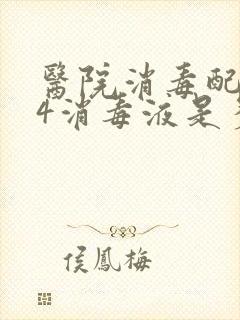 醫院消毒配
4消毒液是
侯鳳梅